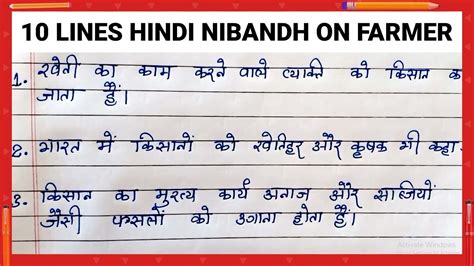 10 LINES HINDI NIBANDH ON FARMER
1. खेती का काम करने वाले व्यक्ति को किसान क
जाता हैं।
2. भारत में किसानों को खेतिहर और कृषक भी कहा
3. किसान का मुख्य कार्य अनाज और सब्जियों
जैसी फसलों को उगाना होता हैं।
Activate Windows